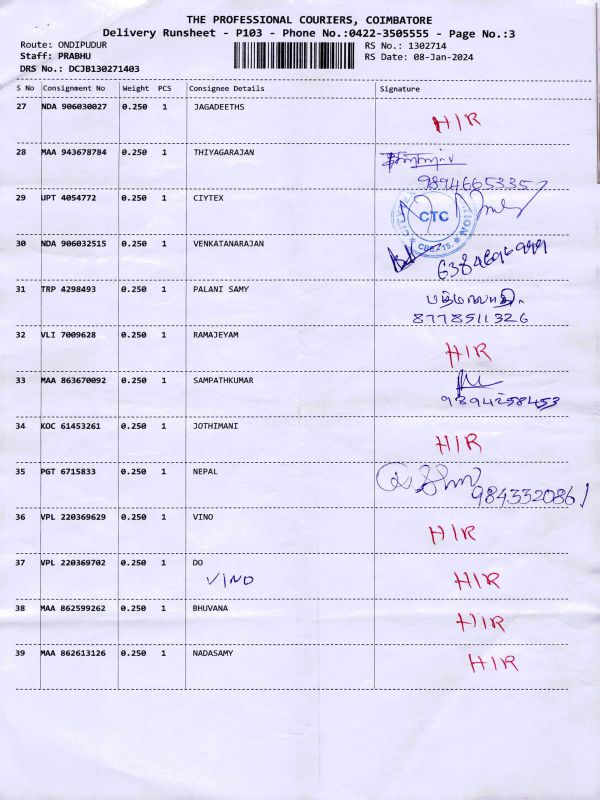 THE PROFESSIONAL COURIERS, COIMBATORE
Delivery Runsheet - P103 - Phone No.:0422-3505555 - Page No.:3
Route: ONDIPUDUR RS No.: 1302714
Staff: PRABHU RS Date: 08-Jan-2024
DRS No.: DCJB130271403
S No Consignment No Weight PCS Consignee Details Signature
27 NDA 906030027 0.250 1 JAGADEETHS
HIR
28 MAA 943678784 0.250 1 THIYAGARAJAN
9894665335
29 UPT 4054772 0.250 1 CIYTEX
CTC
30 NDA 906032515 0.250 1 VENKATANARAJAN
31 TRP 4298493 0.250 1 PALANI SAMY
8778511326
32 VLI 7009628 0.250 1 RAMAJEYAM
HIR
33 MAA 863670092 0.250 1 SAMPATHKUMAR
9894258453
34 KOC 61453261 0.250 1 JOTHIMANI
HIR
35 PGT 6715833 0.250 1 NEPAL
9843320861
36 VPL 220369629 0.250 1 VINO
HIR
37 VPL 220369702 0.250 1 DO
VINO HIR
38 MAA 862599262 0.250 1 BHUVANA
HIR
39 MAA 862613126 0.250 1 NADASAMY
HIR